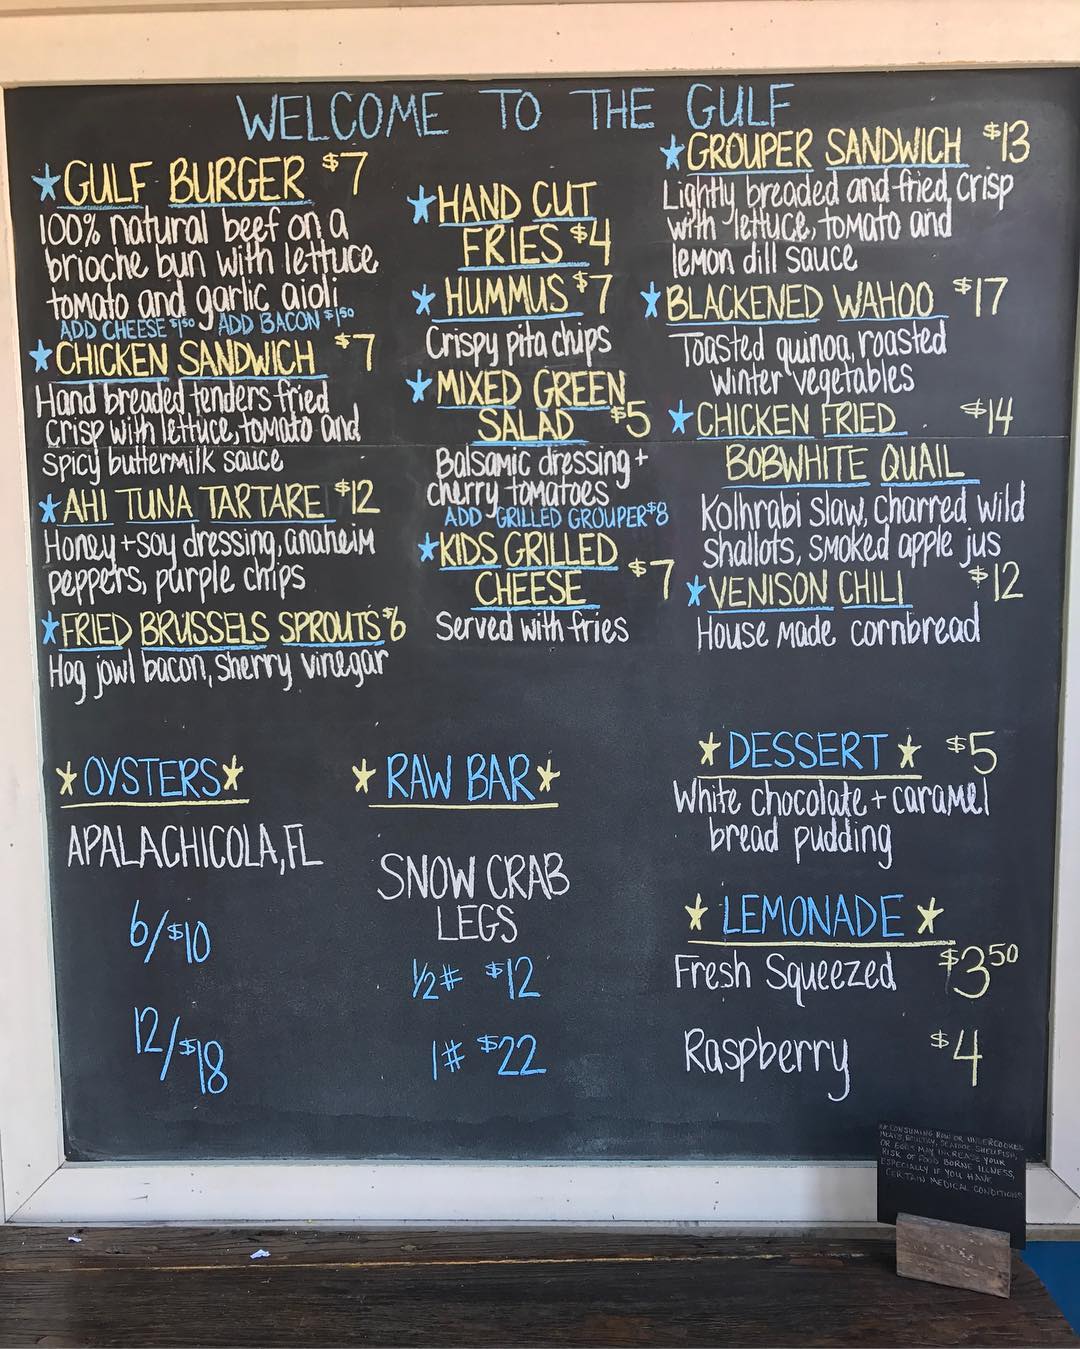 WELCOME TO THE GULF
GULF BURGER $7
100% natural beef on a
brioche bun with lettuce
tomato and garlic aioli
ADD CHEESE $1.50 ADD BACON $1.50
CHICKEN SANDWICH $7
Hand breaded tenders fried
crisp with lettuce, tomato and
spicy buttermilk sauce
AHI TUNA TARTARE $12
Honey + soy dressing, anaheim
peppers, purple chips
FRIED BRUSSELS SPROUTS $6
Hog jowl bacon, sherry vinegar
HAND CUT
FRIES $4
HUMMUS $7
Crispy pita chips
MIXED GREEN
SALAD $5
Balsamic dressing +
cherry tomatoes
ADD GRILLED GROUPER $8
KIDS GRILLED
CHEESE $7
Served with fries
GROUPER SANDWICH $13
Lightly breaded and fried crisp
with lettuce, tomato and
lemon dill sauce
BLACKENED WAHOO $17
Toasted quinoa, roasted
winter vegetables
CHICKEN FRIED $14
BOBWHITE QUAIL
Kolhrabi slaw, charred wild
shallots, smoked apple jus
VENISON CHILI $12
House made cornbread
OYSTERS
APALACHICOLA, FL
6/$10
12/$18
RAW BAR
SNOW CRAB
LEGS
1/2# $12
1# $22
DESSERT $5
White chocolate + caramel
bread pudding
LEMONADE
Fresh Squeezed $3 50
Raspberry $4
CONSUMING RAW OR UNDERCOOKED
MEATS, POULTRY, SEAFOOD, SHELLFISH,
OR EGGS MAY INCREASE YOUR
RISK OF FOOD BORNE ILLNESS,
ESPECIALLY IF YOU HAVE
CERTAIN MEDICAL CONDITIONS